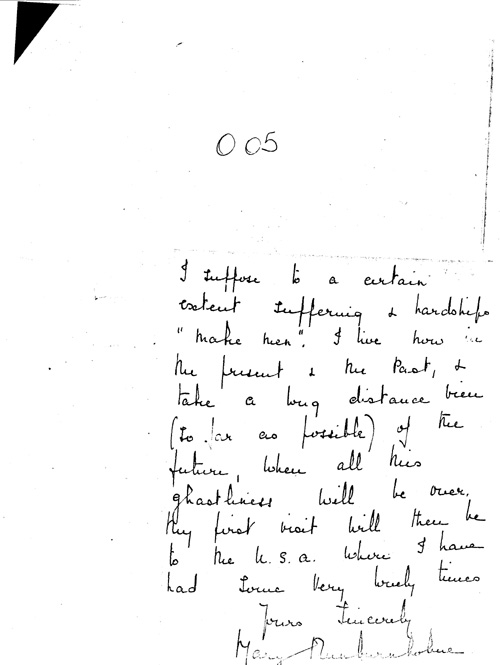 005
I suppose to a certain
extent suffering & hardships
"make men". I live now in
the present & the Past, &
take a long distance view
(so far as possible) of the
future, when all this
ghastliness will be over.
My first visit will then be
to the U.S.A. where I have
had some very lovely times
Yours Sincerely
Mary Nunburnholme